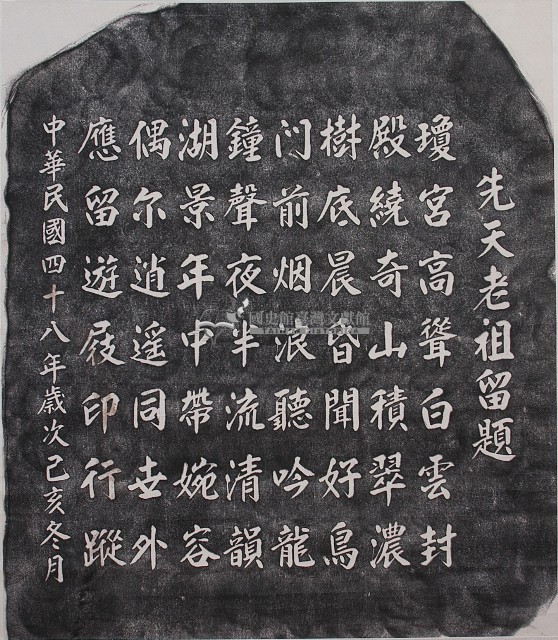 先天老祖留題
瓊宮高聳白雲封
殿繞奇山積翠濃
樹底晨昏聞好鳥
門前烟浪聽吟龍
鐘聲夜半流清韻
湖景年中帶婉容
偶尔逍遥同世外
應留遊屐印行蹤
中華民國四十八年歲次己亥冬月
國史館臺灣文獻館